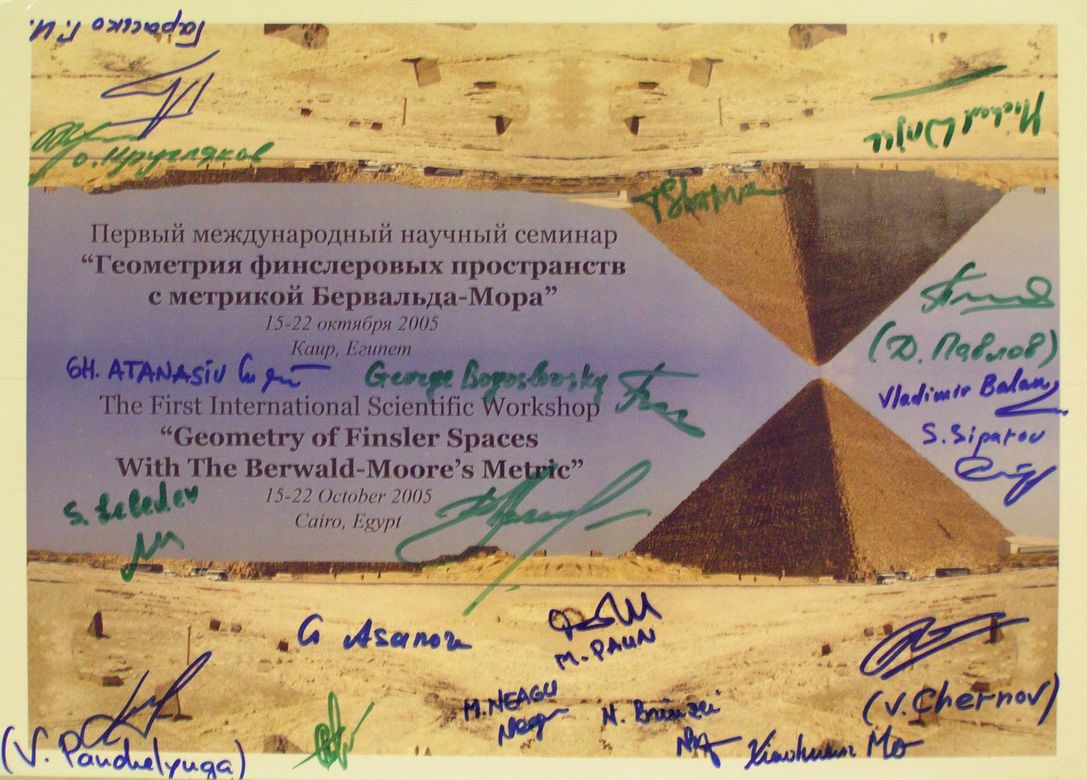 Гарасько Г.И.
О. Кругляков
Первый международный научный семинар
“Геометрия финслеровых пространств
с метрикой Бервальда-Мора”
15-22 октября 2005
Каир, Египет
GH. ATANASIU
George Bogoslovsky
The First International Scientific Workshop
“Geometry of Finsler Spaces
With The Berwald-Moore's Metric”
15-22 October 2005
Cairo, Egypt
(Д. Павлов)
Vladimir Balan
S. Siparov
S. Lebedev
G Asanov
M. PAUN
M. NEAGU
N. Brinzei
(V. Chernov)
(V. Panchelyuga)
Xiaohuan Mo